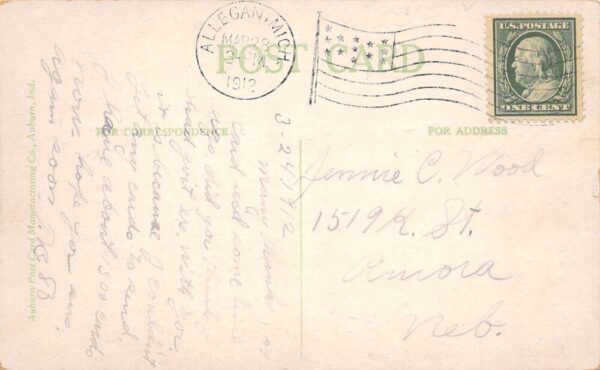 ALLEGAN, MICH
MAR 28
M
1912
POST CARD
U.S. POSTAGE
ONE CENT
FOR CORRESPONDENCE
FOR ADDRESS
Auburn Post Card Manufacturing Co., Auburn, Ind.
3-24-1912
Many thanks for
card rec'd some time
ago did you think I
had got en with you
it is because I couldn't
get any cards to send.
I have about 500 cards
now. hope you ans
again soon
Jennie C. Wood
1519 K. St.
Aurora
Neb.